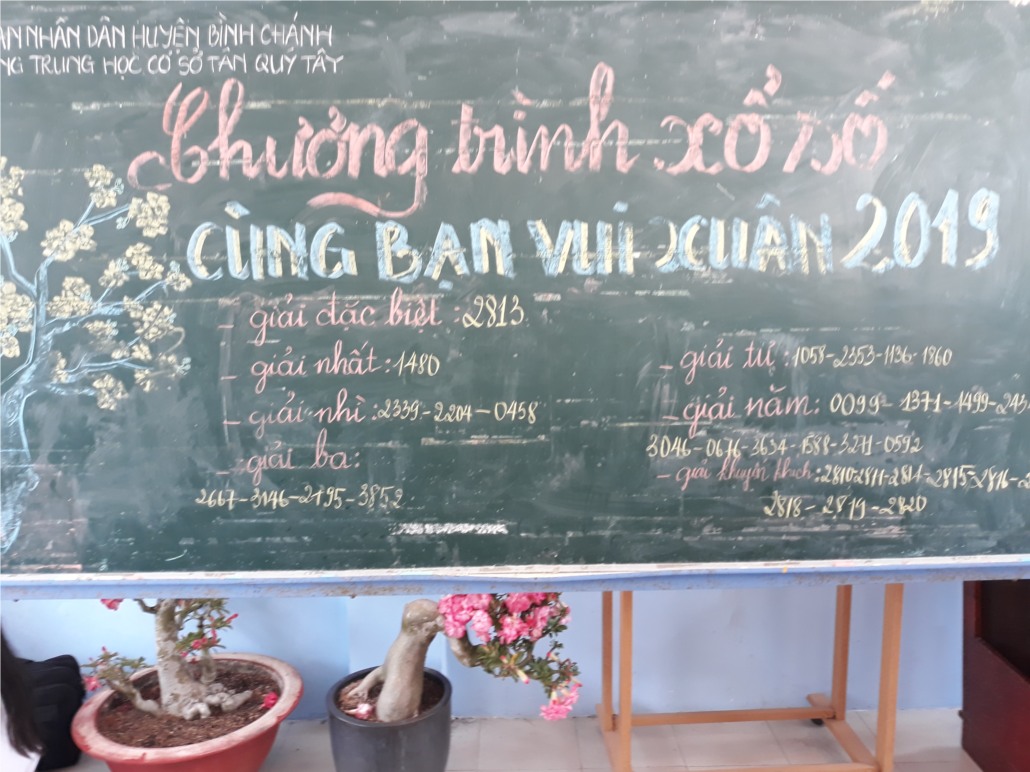 NHÂN DÂN HUYỆN BÌNH CHÁNH
TRUNG HỌC CƠ SỞ TÂN QUÝ TÂY
Chương trình xổ số
CÙNG BẠN VUI XUÂN 2019
- giải đặc biệt : 2813
- giải nhất : 1480
- giải nhì : 2339 - 2204 - 0458
- giải ba :
2667 - 3146 - 2195 - 3852
- giải tư : 1058 - 2353 - 1136 - 1860
- giải năm : 0099 - 1371 - 1499 -
3046 - 0676 - 3634 - 1588 - 3271 - 0592
- giải khuyến khích : 2810 - 2811 - 2814 - 2815 - 2816 -
2818 - 2819 - 2820